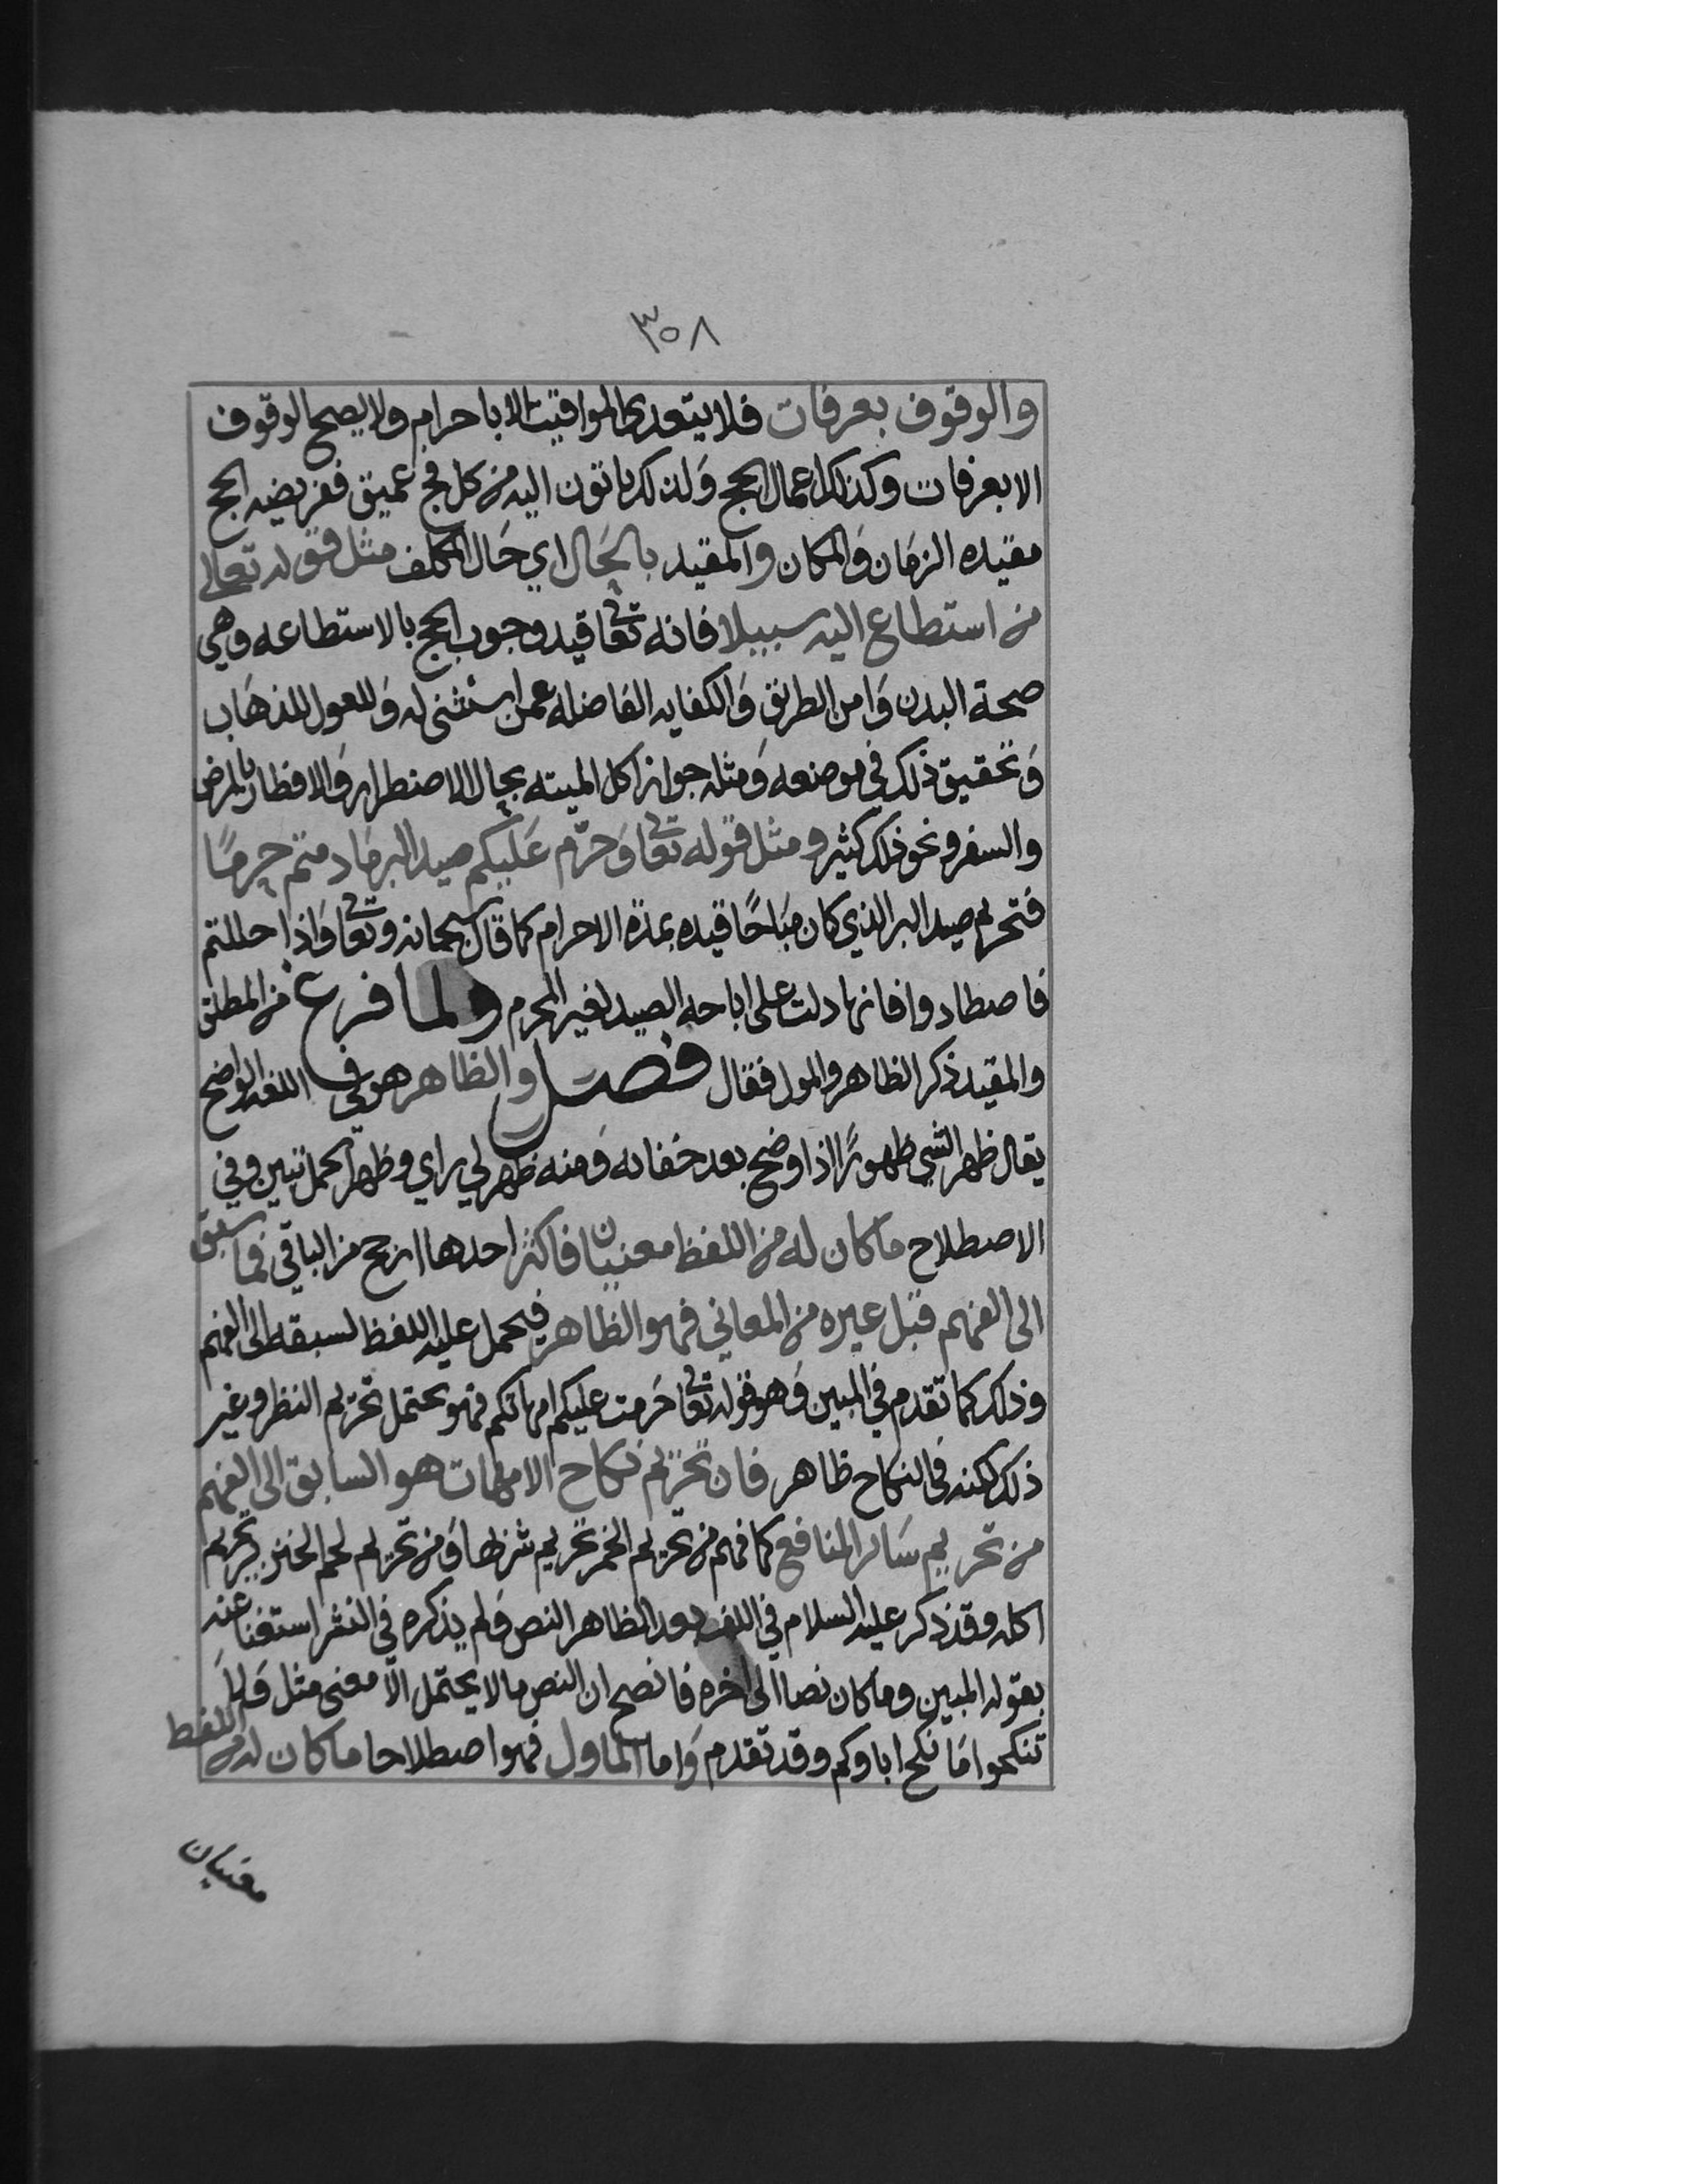 ٣٥٨
والوقوف بعرفات فلا يتعدى المواقيت الا باحرام ولا يصح الوقوف
الا بعرفات وكذلك اعمال الحج وَلذلك ياتون اليه من كل فج عميق ففريضه الحج
مقيده الزمَان وَالمكان والمقيد بالحَال اي حَال المكلف مثل قوله تعالى
من استطاع اليه سبيلا فانه تعا قيد وجوب الحج بالاستطاعه وهي
صحة البدن وَامن الطريق وَالكفايه الفاضله عمن استثنى له وَللعول للذهَاب
وَتحقيق ذلك في موضعه وَمثله جواز اكل الميته بحال الاضطرار وَالافطار بالمرض
والسفر ونحو ذلك كثير ومثل قوله تعا وَحرّم عَليكم صيد البر مَا دمتم حرمًا
فتحريم صيد البر الذي كان مبَاحًا قيده بمدة الاحرام كما قال سبحانه وتعا وَاذا حللتم
فاصطادوا فانها دلت على اباحه الصيد لغير المحرم ولما فرغ من المطلق
والمقيد ذكر الظاهر والمول فقال فصل والظاهر هو في اللغه الواضح
يقال ظهر الشي ظهورًا اذا وضح بعد خفائه وَمنه ظهر لي راي وظهر الحمل تبين وفي
الاصطلاح ما كان له من اللفظ معنيان فاكثر احدها ارجح من الباقي فما سبق
الى الفهم قبل غيره من المعاني فهو الظاهر فيحمل عليه اللفظ لسبقه الى الفهم
وذلك كما تقدم في المبين وَهو قوله تعا حَرمت عليكم امهاتكم فهو يحتمل تحريم النظر وغير
ذلك لكنه في النكاح ظاهر فان تحريم نكاح الامهات هو السابق الى الفهم
من تحريم سَائر المنافع كما فهم من تحريم الخمر تحريم شربها وَمن تحريم لحم الخنزير تحريم
اكله وقد ذكر عليه السلام في اللف بعد الظاهر النص وَلم يذكره في النشر استغنا عنه
بقوله المبين وما كان نصا الى اخره فاتضح ان النص ما لا يحتمل الا معنى مثل وَلا
تنكحوا مَا نكح اباوكم وقد تقدم وَاما الماول فهو اصطلاحا ما كان له من اللفظ
معنيان